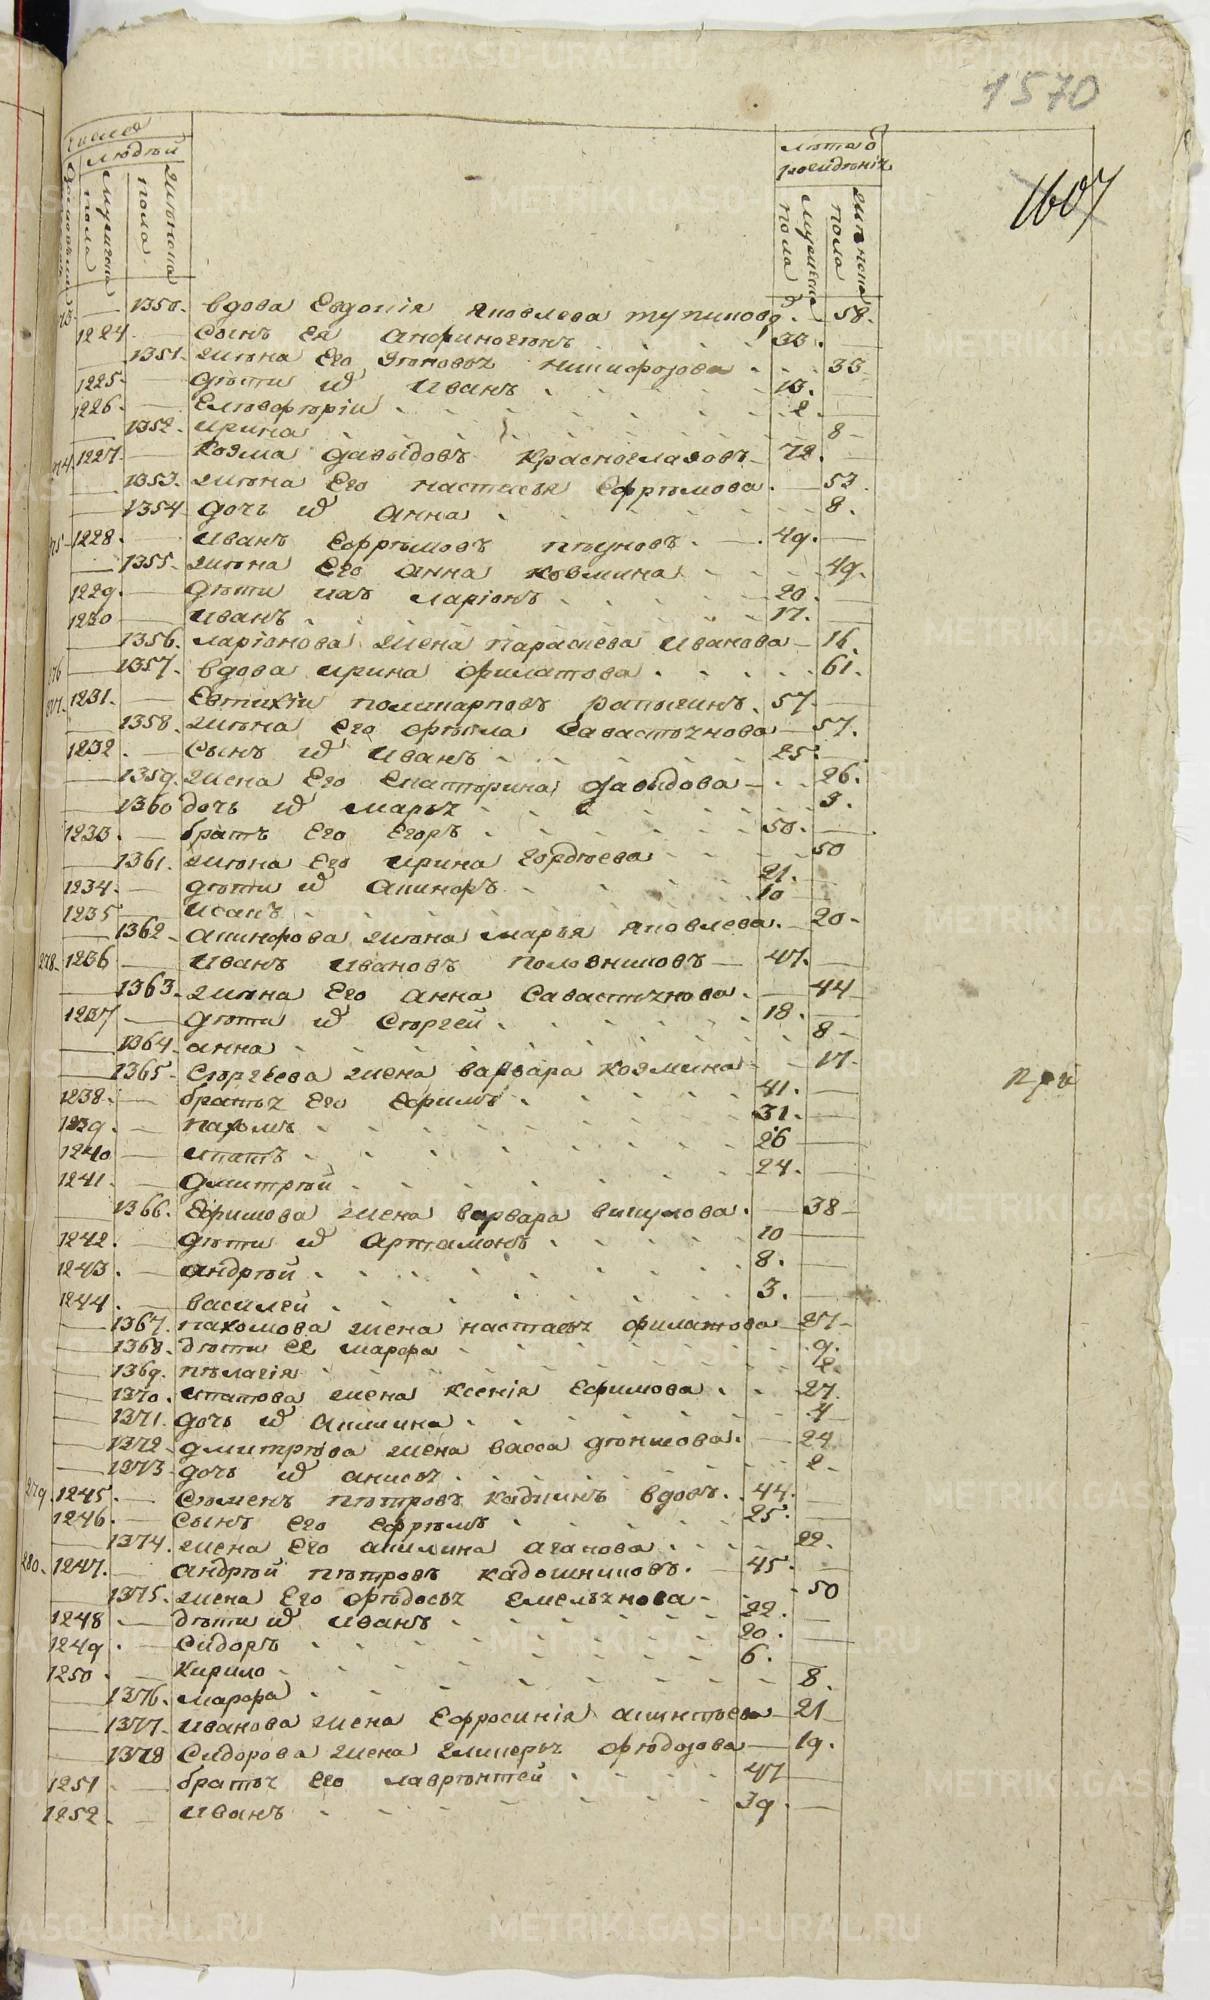 1570
1607
число
людѣй
мужеска пола
женска пола
лѣта от рождѣнія
мужеска пола
женска пола
1350. вдова Евдокія Яковлева тупикова 58.
1224 сынъ ея Анфиногенъ 33.
1351. жена его никифорова 33
1225. дѣти Иванъ 13.
1226. Елевферіи 2.
1352. ирина 8
1227. козма давыдовъ красноглазовъ 72.
1353. жена Его настасья Ефремова 53
1354 дочь анна 8.
1228. Иванъ Ефремовъ пѣуновъ 49.
1355. жена Его анна козмина 49.
1229. дѣти ларіонъ 20.
1230 иванъ 17.
1356. ларіонова жена параскева Иванова 16.
276 1357. вдова ирина филатова 61.
277. 1231. Евтихіи поликарповъ 57
1358. жена его фекла Савастьянова 57.
1232. сынъ Иванъ 25
1359. жена Его Екаттерина давыдова 26.
1360 дочь марья 3.
1233. братъ Его Егоръ 50.
1361. жена Его ирина гордѣева 50
1234. дѣти аникоръ 21.
1235 исакъ 10
1362 аникорова жена марья яковлева. 20
278. 1236 иванъ ивановъ половниковъ 47.
1363. жена Его анна Савастьянова. 44
1237 дѣти Сергей 18.
1364 анна 8
1365 Сергѣева жена варвара козмина 17.
1238. братья Его Ефимъ 41.
1239. пахомъ 31.
1240 ипатъ 26
1241. дмитрѣй 24.
1366. Ефимова жена варвара викулова. 38
1242. дѣти артамонъ 10
1243. андрѣй 8.
1244. василей 3.
1367. пахомова жена настасья филатова 27
1368. дѣти Ея марфа 9.
1369. пѣлагія 2.
1370. ипатова жена ксенія Ефимова 27.
1371. дочь акилина 4
1372 дмитрѣва жена васса 24
1373 дочь анисья 2.
279. 1245. Семенъ петровъ вдовъ. 44.
1246. сынъ его ефремъ 25.
1374. жена Его акилина агапова 22.
280. 1247. андрѣй петровъ кадошниковъ. 45.
1375. жена Его федосья емельянова 50
1248 дѣти иванъ 22.
1249. Сидоръ 20.
1250. кирило 6.
1376. марфа 8.
1377. иванова жена Ефросинія 21
1378 Сидорова жена гликерья федотова 19.
1251 братья его лаврентей 47
1252. иванъ 39
при
METRIKI.GASO-URAL.RU